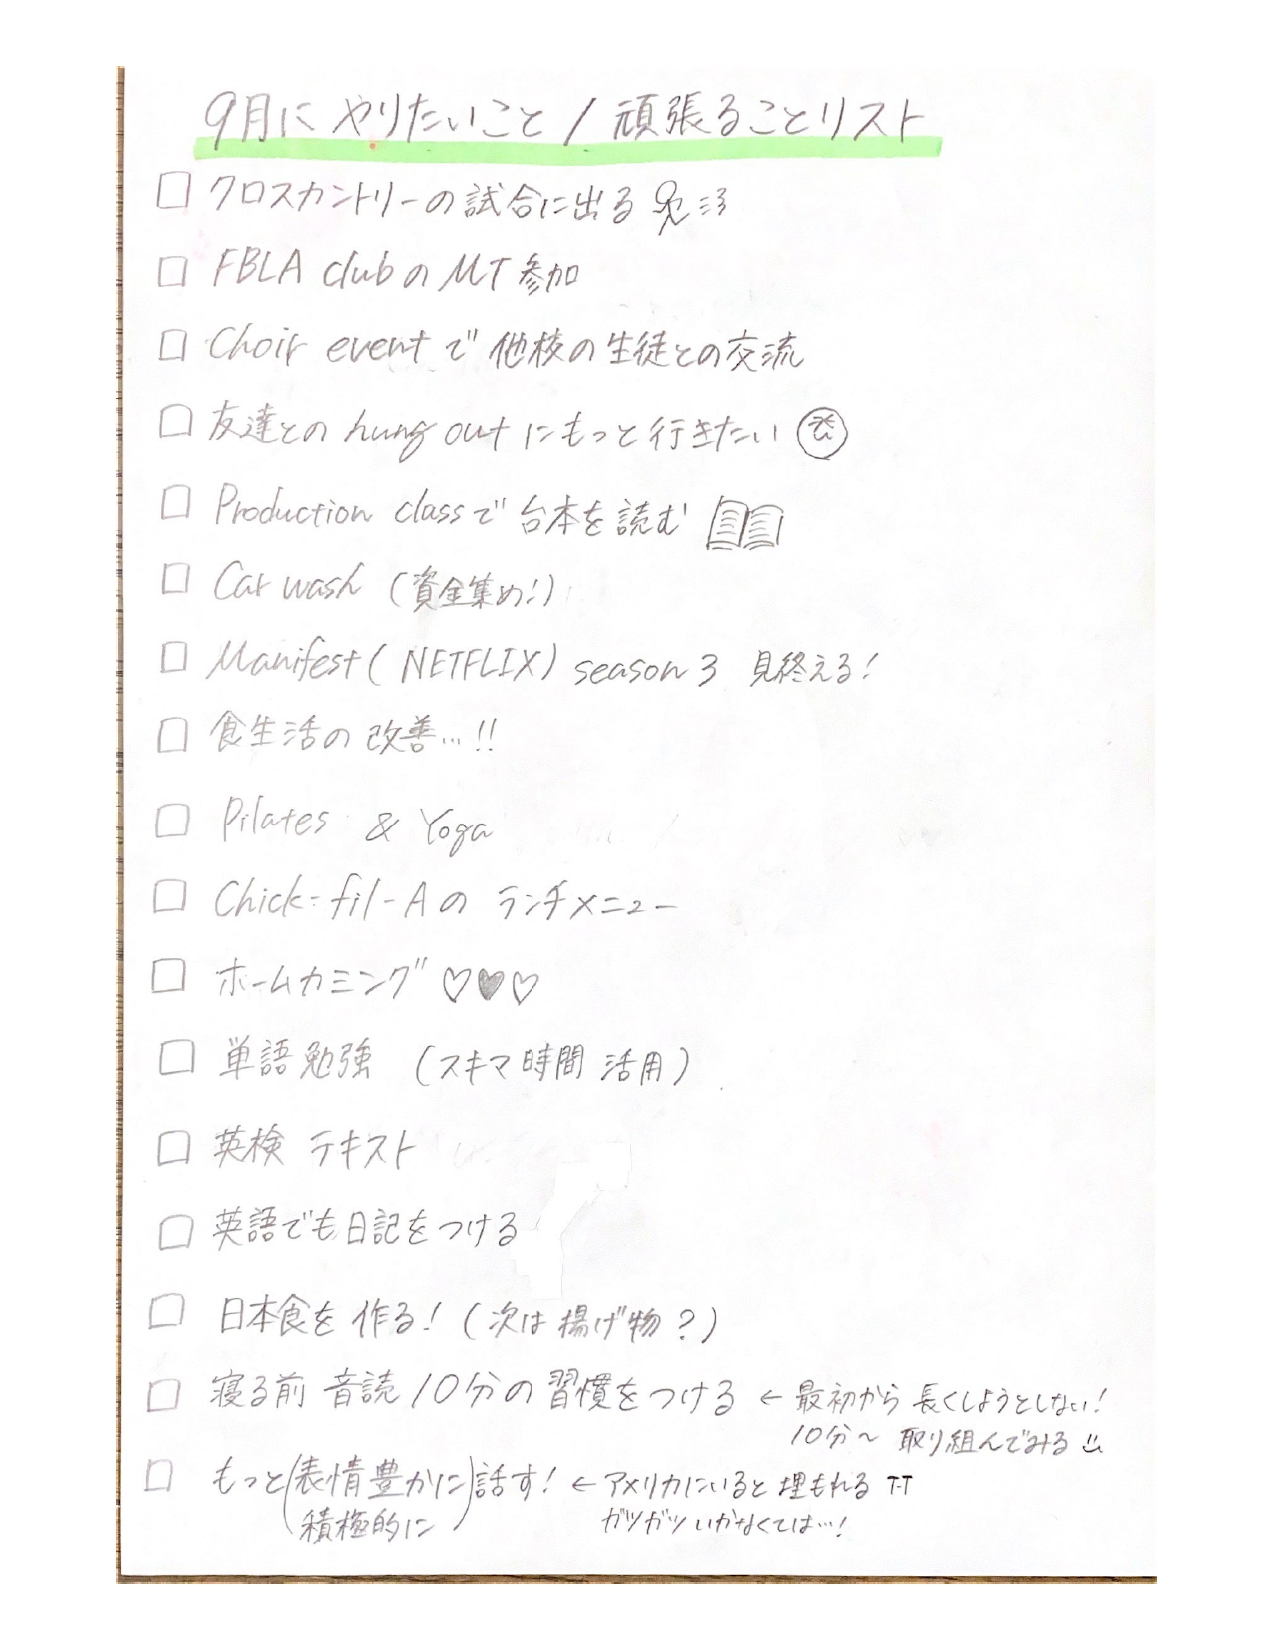 9月に やりたいこと / 頑張ることリスト
クロスカントリーの試合に出る
FBLA clubのMT参加
Choir eventで他校の生徒との交流
友達との hung out にもっと行きたい
Production classで台本を読む
Car wash (資金集め!)
Manifest (NETFLIX) season 3 見終える!
食生活の改善…!!
Pilates & Yoga
Chick-fil-Aの ランチメニュー
ホームカミング ♡♥♡
単語勉強 (スキマ時間 活用)
英検 テキスト
英語でも日記をつける
日本食を作る! (次は揚げ物?)
寝る前 音読10分の習慣をつける ← 最初から 長くしようとしない!
10分〜 取り組んでみる
もっと(表情豊かに)話す! ← アメリカにいると埋もれる T-T
積極的に ガツガツいかなくては…!